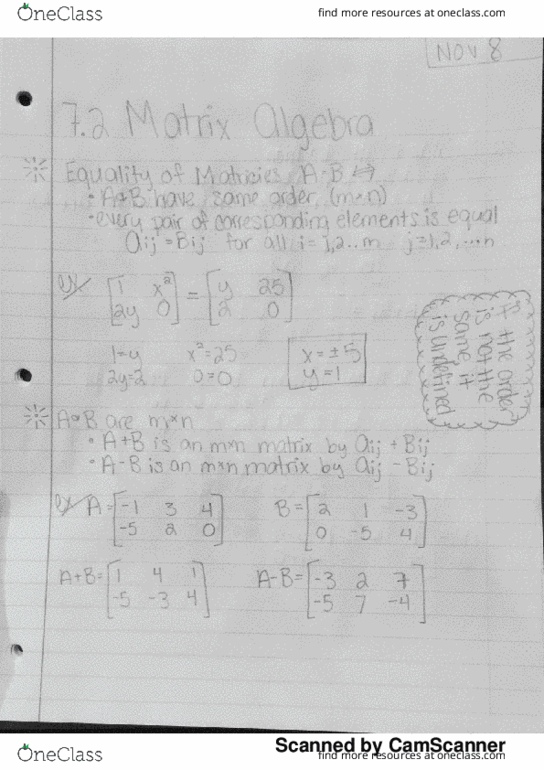 OneClass
find more resources at oneclass.com
NOV 8
7.2 Matrix Algebra
Equality of Matricies A=B ⇔
• A+B have same order (m×n)
• every pair of corresponding elements is equal
aij = Bij for all i = 1,2..m j=1,2,...n
ex/ [1 x²; 2y 0] = [y 25; 2 0]
1=y x²=25
2y=2 0=0
x = ±5
y = 1
If the order
is not the
same, it
is undefined
A+B are m×n
• A+B is an m×n matrix by aij + Bij
• A-B is an m×n matrix by aij - Bij
ex/ A = [-1 3 4; -5 2 0] B = [2 1 -3; 0 -5 4]
A+B = [1 4 1; -5 -3 4] A-B = [-3 2 7; -5 7 -4]
Scanned by CamScanner
OneClass
find more resources at oneclass.com